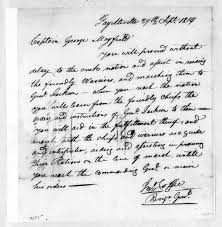 Fayetteville 29th Sept. 1814
Captain George Mayfield
you will proceed without
delay to the creek nation and assist in raising
the friendly Warriors, and marching them to
when you reach the nation
you will learn from the friendly chiefs the
and instructions of Genl Jackson
you will aid in the
march with the chiefs and warriors as guide
and interpreter, aiding and assisting in
their on the line of march untill
you reach the commanding Genl or receive
his orders
Jno Coffee
Brigr Genl